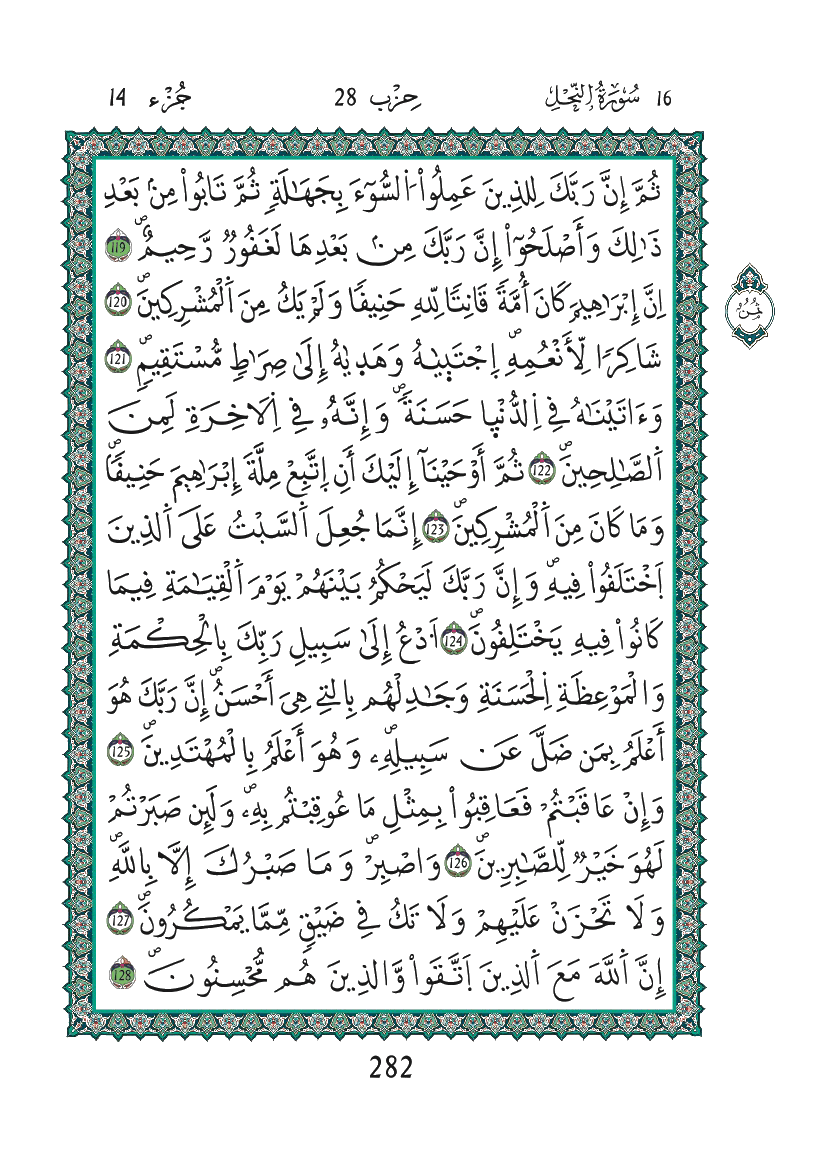 16 سُورَةُ النَّحْلِ حِزْب 28 جُزْء 14
ثُمَّ إِنَّ رَبَّكَ لِلذِينَ عَمِلُواْ اُلسُّوٓءَ بِجَهَٰلَةٖ ثُمَّ تَابُواْ مِنۢ بَعْدِ
ذَٰلِكَ وَأَصْلَحُوٓاْ إِنَّ رَبَّكَ مِنۢ بَعْدِهَا لَغَفُورٞ رَّحِيمٌۖ 119
ثُمُن
اِنَّ إِبْرَٰهِيمَ كَانَ أُمَّةٗ قَانِتاٗ لِّلهِ حَنِيفاٗ وَلَمْ يَكُ مِنَ اَلْمُشْرِكِينَۖ 120
شَاكِراٗ لِّأَنْعُمِهِۖ اِجْتَبَيٰهُ وَهَدَيٰهُ إِلَىٰ صِرَٰطٖ مُّسْتَقِيمٖۖ 121
وَءَاتَيْنَٰهُ فِے اِلدُّنْيَا حَسَنَةٗۖ وَإِنَّهُۥ فِے اِلَاخِرَةِ لَمِنَ
اَلصَّٰلِحِينَۖ 122 ثُمَّ أَوْحَيْنَآ إِلَيْكَ أَنِ اِتَّبِعْ مِلَّةَ إِبْرَٰهِيمَ حَنِيفاٗۖ
وَمَا كَانَ مِنَ اَلْمُشْرِكِينَۖ 123 إِنَّمَا جُعِلَ اَلسَّبْتُ عَلَى اَلذِينَ
اَخْتَلَفُواْ فِيهِۖ وَإِنَّ رَبَّكَ لَيَحْكُمُ بَيْنَهُمْ يَوْمَ اَلْقِيَٰمَةِ فِيمَا
كَانُواْ فِيهِ يَخْتَلِفُونَۖ 124 اَدْعُ إِلَىٰ سَبِيلِ رَبِّكَ بِالْحِكْمَةِ
وَالْمَوْعِظَةِ اِلْحَسَنَةِ وَجَٰدِلْهُم بِالتِے هِيَ أَحْسَنُۖ إِنَّ رَبَّكَ هُوَ
أَعْلَمُ بِمَن ضَلَّ عَن سَبِيلِهِۦۖ وَهُوَ أَعْلَمُ بِالْمُهْتَدِينَۖ 125
وَإِنْ عَاقَبْتُمْ فَعَاقِبُواْ بِمِثْلِ مَا عُوقِبْتُم بِهِۦۖ وَلَئِن صَبَرْتُمْ
لَهُوَ خَيْرٞ لِّلصَّٰبِرِينَۖ 126 وَاصْبِرْۖ وَمَا صَبْرُكَ إِلَّا بِاللَّهِۖ
وَلَا تَحْزَنْ عَلَيْهِمْ وَلَا تَكُ فِے ضَيْقٖ مِّمَّا يَمْكُرُونَۖ 127
إِنَّ اَللَّهَ مَعَ اَلذِينَ اَتَّقَواْ وَّالذِينَ هُم مُّحْسِنُونَۖ 128
282